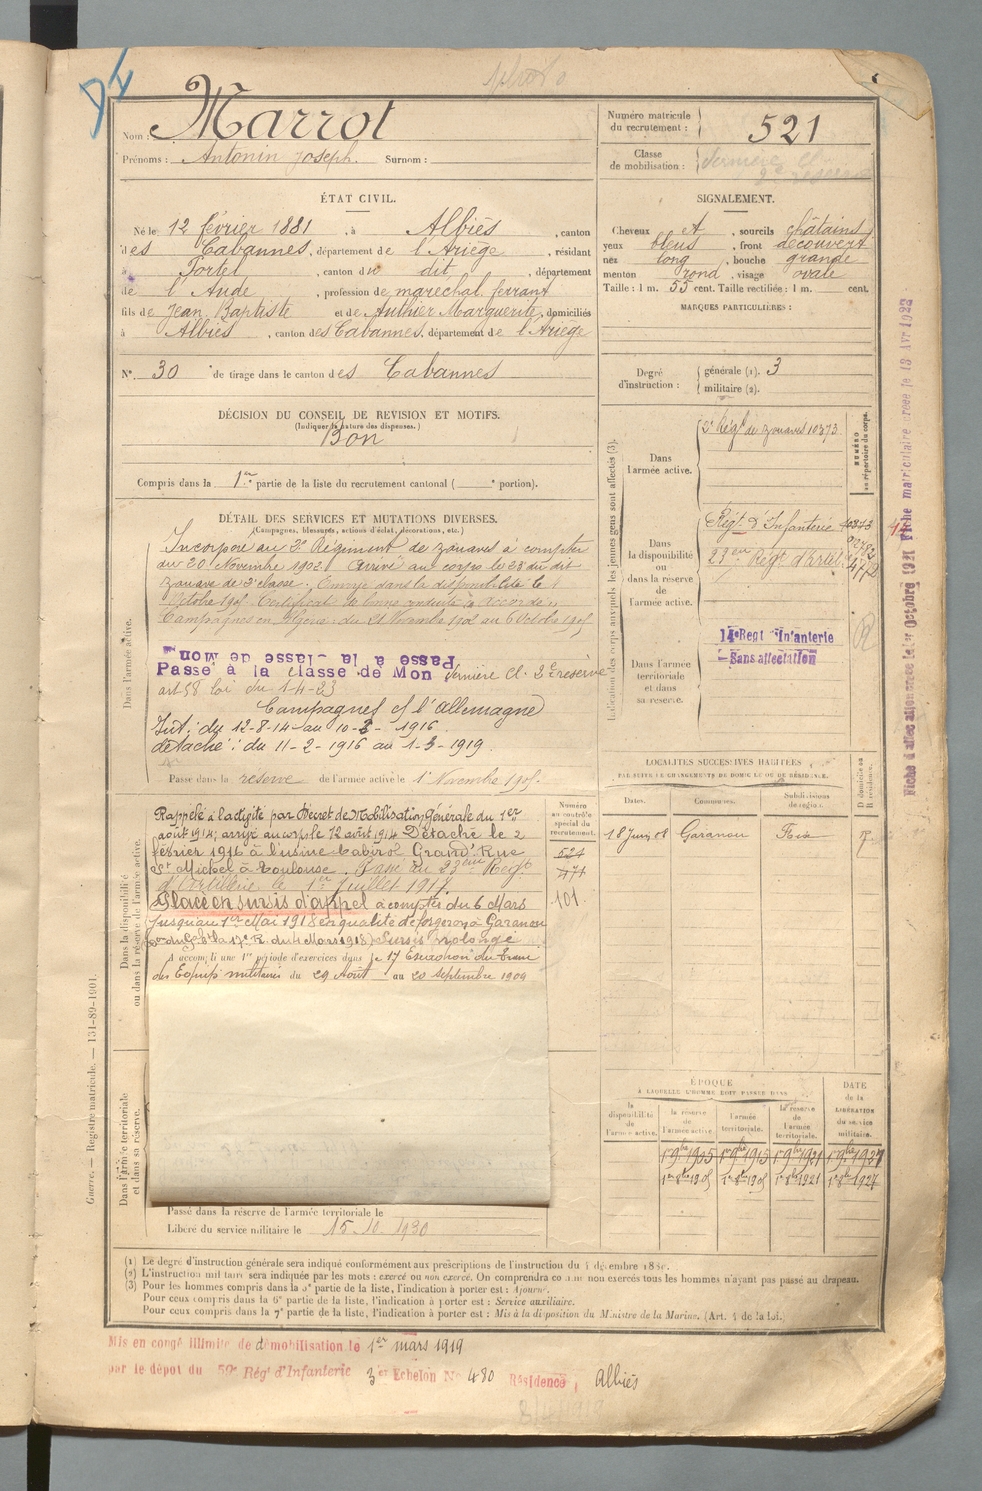 Nom : Marrot
Prénoms : Antonin Joseph. Surnom :
Numéro matricule du recrutement : 521
Classe de mobilisation : dernière Cl.
2e réserve
ÉTAT CIVIL.
Né le 12 février 1881, à Albiès, canton
des Cabannes, département de l'Ariège, résidant
à Portel, canton du dit, département
de l'Aude, profession de maréchal ferrant
fils de Jean Baptiste et de Authier Marguerite, domiciliés
à Albiès, canton des Cabannes, département de l'Ariège
N° 30 de tirage dans le canton des Cabannes
SIGNALEMENT.
Cheveux et, sourcils châtains,
yeux bleus, front découvert
nez long, bouche grande
menton rond, visage ovale
Taille : 1 m. 55 cent. Taille rectifiée : 1 m. cent.
MARQUES PARTICULIÈRES :
Degré d'instruction : générale (1). 3
militaire (2).
DÉCISION DU CONSEIL DE REVISION ET MOTIFS.
(Indiquer la nature des dispenses.)
Bon
Compris dans la 1re partie de la liste du recrutement cantonal ( e portion).
DÉTAIL DES SERVICES ET MUTATIONS DIVERSES.
(Campagnes, blessures, actions d'éclat, décorations, etc.)
Dans l'armée active.
Incorporé au 2e Régiment de zouaves à compter
du 20 Novembre 1902. Arrivé au corps le 23 du dit
zouave de 2e classe. Envoyé dans la disponibilité le
Octobre 1905. Certificat de bonne conduite accordé
Campagnes en Algérie : du 21 Novembre 1902 au 6 Octobre 1905
Passé à la classe de Mon
Passé à la classe de Mon dernière Cl. 2e réserve
art 58 loi du 1-4-23
Campagnes c/ l'Allemagne
Int : du 12-8-14 au 10-2-1916
détaché : du 11-2-1916 au 1-3-1919.
Passé dans la réserve de l'armée active le 1er Novembre 1905.
Indication des corps auxquels les jeunes gens sont affectés (3).
NUMÉRO au répertoire du corps.
Dans l'armée active.
2e Régt de zouaves 10373
Dans la disponibilité ou dans la réserve de l'armée active.
Régt d'Infanterie 10373
23ème Régt d'Artel. 472
Dans l'armée territoriale et dans sa réserve.
14e Regt Infanterie
Sans affectation
Fiche d'affectation créée le 1er Octobre 1921 Fiche matriculaire créée le 13 Avr 1922
Dans la disponibilité ou dans la réserve de l'armée active.
Numéro au contrôle spécial du recrutement.
521
471
101.
Rappelé à l'activité par Décret de Mobilisation Générale du 1er
août 1914; arrivé au corps le 12 août 1914 Détaché le 2
février 1916 à l'usine Cabirol Grand'Rue
St Michel à Toulouse. Passé au 23ème Régt
d'Artillerie le 1er Juillet 1917.
Placé en sursis d'appel à compter du 6 Mars
jusqu'au 1er Mai 1918 en qualité de forgeron à Garanou
Sursis prolongé
A accompli une 1re période d'exercices dans le 17 Escadron du Train
des Equip. militaires du 29 Août au 20 Septembre 1909
LOCALITÉS SUCCESSIVES HABITÉES
PAR SUITE DE CHANGEMENTS DE DOMICILE OU DE RÉSIDENCE.
Dates. Communes. Subdivisions de région. D domicile ou R résidence.
18 Juin 08 Garanou Foix
ÉPOQUE
À LAQUELLE L'HOMME DOIT PASSER DANS
la disponibilité de l'armée active. la réserve de l'armée active. l'armée territoriale. la réserve de l'armée territoriale. DATE de la LIBÉRATION du service militaire.
1er 9bre 1905 1er 9bre 1915 1er 9bre 1921 1er 9bre 1927
Dans l'armée territoriale et dans sa réserve.
Passé dans la réserve de l'armée territoriale le
Libéré du service militaire le 15.10.1930
Guerre. — Registre matricule. — 151-89-1901.
(1) Le degré d'instruction générale sera indiqué conformément aux prescriptions de l'instruction du
(2) L'instruction militaire sera indiquée par les mots : exercé ou non exercé. On comprendra comme non exercés tous les hommes n'ayant pas passé au drapeau.
(3) Pour les hommes compris dans la 5e partie de la liste, l'indication à porter est : Ajourné.
Pour ceux compris dans la 6e partie de la liste, l'indication à porter est : Service auxiliaire.
Pour ceux compris dans la 7e partie de la liste, l'indication à porter est : Mis à la disposition du Ministre de la Marine. (Art. 4 de la loi.
Mis en congé illimité de démobilisation le 1er mars 1919
par le dépôt du 59e Régt d'Infanterie 3e Echelon N° 480 Résidence, Albiès